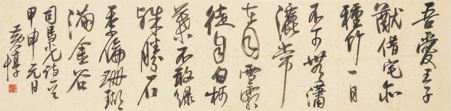 吾愛王子
猷借宅亦
種竹一日
不可無瀟
灑常
在目雪霜
徒自白柯
葉不改緑
殊勝石
季倫珊瑚
滿金谷
司馬光詩
甲申元日
黄惇